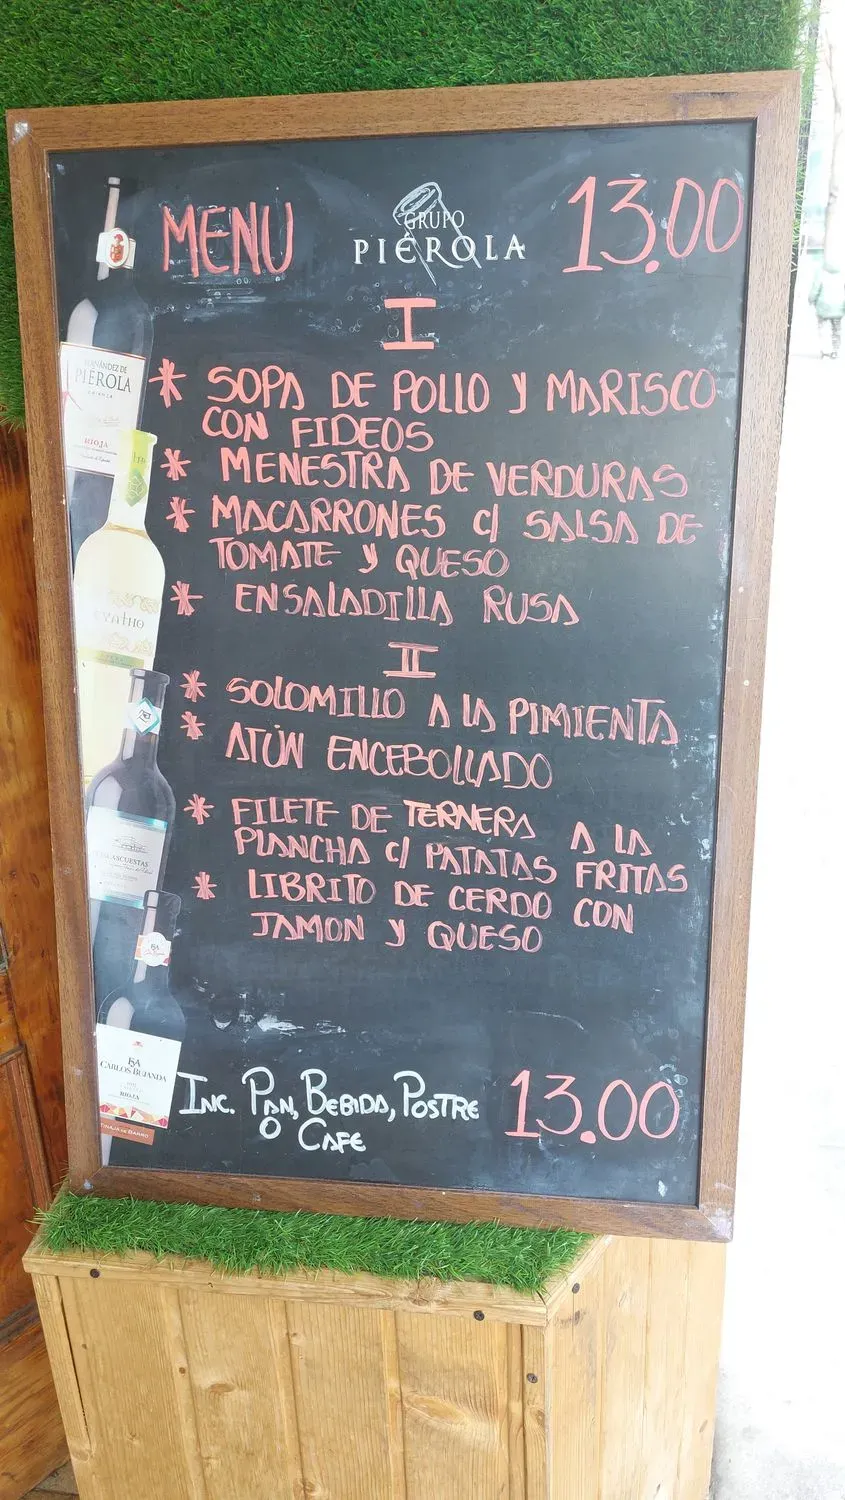 MENU
GRUPO
PIÉROLA
13.00
I
* SOPA DE POLLO Y MARISCO
CON FIDEOS
* MENESTRA DE VERDURAS
* MACARRONES C/ SALSA DE
TOMATE Y QUESO
* ENSALADILLA RUSA
II
* SOLOMILLO A LA PIMIENTA
* ATÚN ENCEBOLLADO
* FILETE DE TERNERA A LA
PLANCHA C/ PATATAS FRITAS
* LIBRITO DE CERDO CON
JAMON Y QUESO
INC. PAN, BEBIDA, POSTRE
O CAFE
13.00
FERNÁNDEZ DE
PIÉROLA
CRIANZA
RIOJA
CARLOS BUJANDA
RIOJA
TINAJA DE BARRO